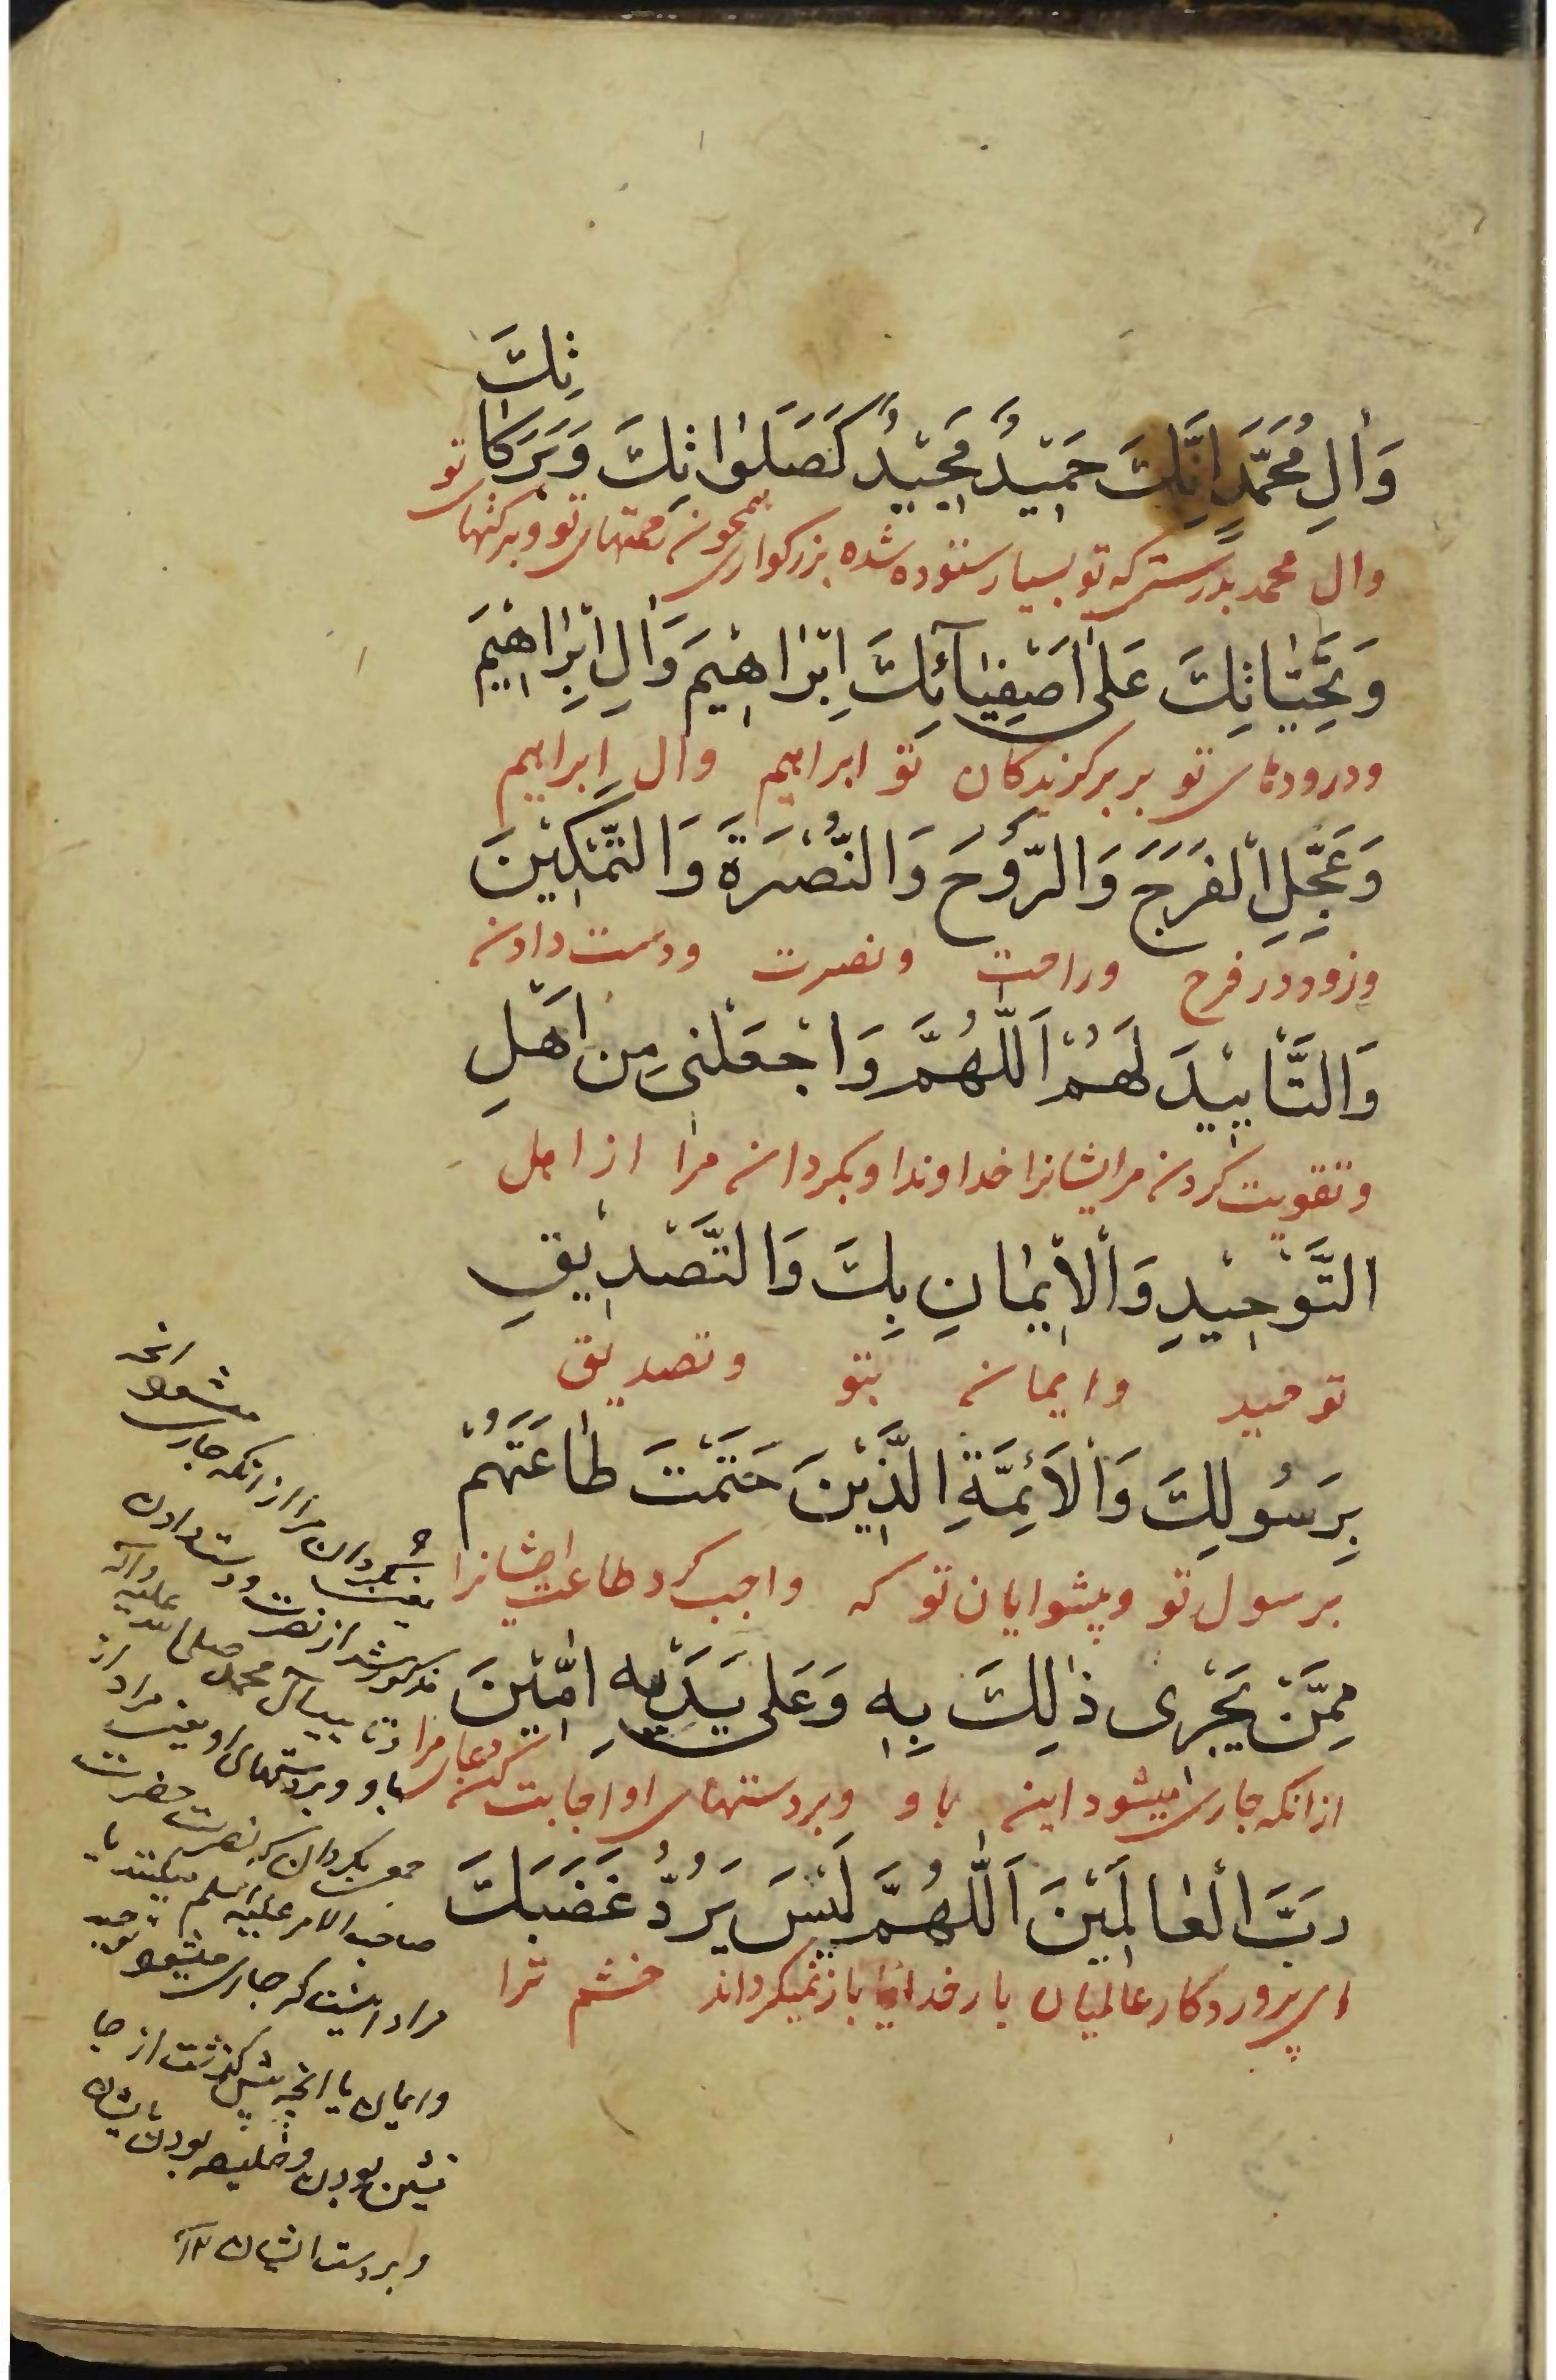 وَاٰلِ مُحَمَّدٍ اِنَّكَ حَمِيْدٌ مَجِيْدٌ كَصَلَوٰاتِكَ وَبَرَكٰاتِكَ
وال محمد بدرستی که تو بسیار ستوده شده بزرکواری همچون رحمتهای تو وبرکتهای تو
وَتَحِيّٰاتِكَ عَلٰى اَصْفِيٰآئِكَ اِبْرٰاهِيْمَ وَاٰلِ اِبْرٰاهِيْمَ
ودرودهای تو بر برکزیدکان تو ابراهیم وال ابراهیم
وَعَجِّلِ الْفَرَجَ وَالرَّوْحَ وَالنُّصْرَةَ وَالتَّمْكِيْنَ
وزود در فرح وراحت ونصرت ودست دادن
وَالتَّاْيِيْدَ لَهُمْ اَللّٰهُمَّ وَاجْعَلْنِى مِنْ اَهْلِ
وتقویت کردن مرایشانرا خداوندا وبکردان مرا از اهل
التَّوْحِيْدِ وَالْاِيْمٰانِ بِكَ وَالتَّصْدِيْقِ
توحید وایمان بتو وتصدیق
بِرَسُولِكَ وَالْاَئِمَّةِ الَّذِيْنَ حَتَمْتَ طٰاعَتَهُمْ
برسول تو وپیشوایان تو که واجب کرد طاعت ایشانرا
مِمَّنْ يَجْرِى ذٰلِكَ بِهِ وَعَلٰى يَدَيْهِ اٰمِّيْنَ
ازانکه جاری میشود این باو وبر دستهای او اجابت کن دعای مرا
رَبَّ الْعٰالَمِيْنَ اَللّٰهُمَّ لَيْسَ يَرُدُّ غَضَبَكَ
ای پروردکار عالمیان بار خدایا باز نمیکرداند خشم ترا
بکردان مرا از انکه جاری میشود انچه
مذکور شد از نصرت ودست دادن
وتایید آل محمد صلی الله علیه وآله
باو وبر دستهای او یعنی مراد از
جمعی بکردان که نصرت حضرت
صاحب الامر علیه السلم میکنند یا
مراد اینست که جاری میشود توحید
وایمان یا انچه پیش کذشت از جا
نشین بودن وخلیفه بودن بایشان
وبر دست ایشان ۱۲